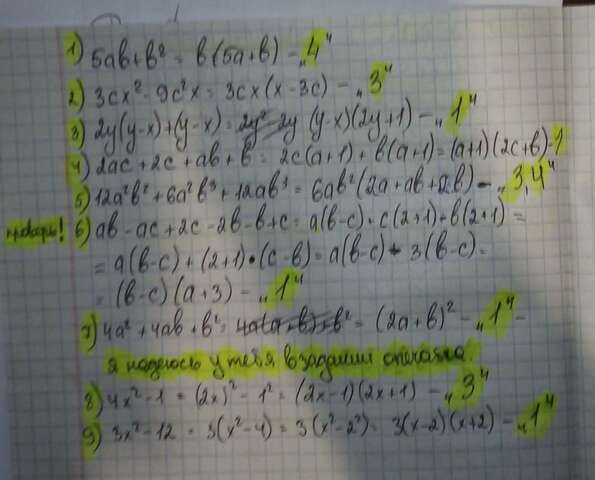 1) 5ab+b² = b(5a+b) - „4"
2) 3cx² - 9c²x = 3cx(x-3c) - „3"
3) 2y(y-x)+(y-x) = (y-x)(2y+1) - „1"
4) 2ac+2c+ab+b = 2c(a+1)+b(a+1) = (a+1)(2c+b)-1
5) 12a²b²+6a²b³+12ab³ = 6ab²(2a+ab+2b) - „3,4"
проверь! 6) ab-ac+2c-2b-b+c = a(b-c)+c(2+1)-b(2+1) =
= a(b-c)+(2+1)•(c-b) = a(b-c) - 3(b-c) =
= (b-c)(a+3) - „1"
7) 4a²+4ab+b² = (2a+b)² - „1" -
я надеюсь у тебя в задании опечатка.
8) 4x²-1 = (2x)²-1² = (2x-1)(2x+1) - „3"
9) 3x²-12 = 3(x²-4) = 3(x²-2²) = 3(x-2)(x+2) - „1"